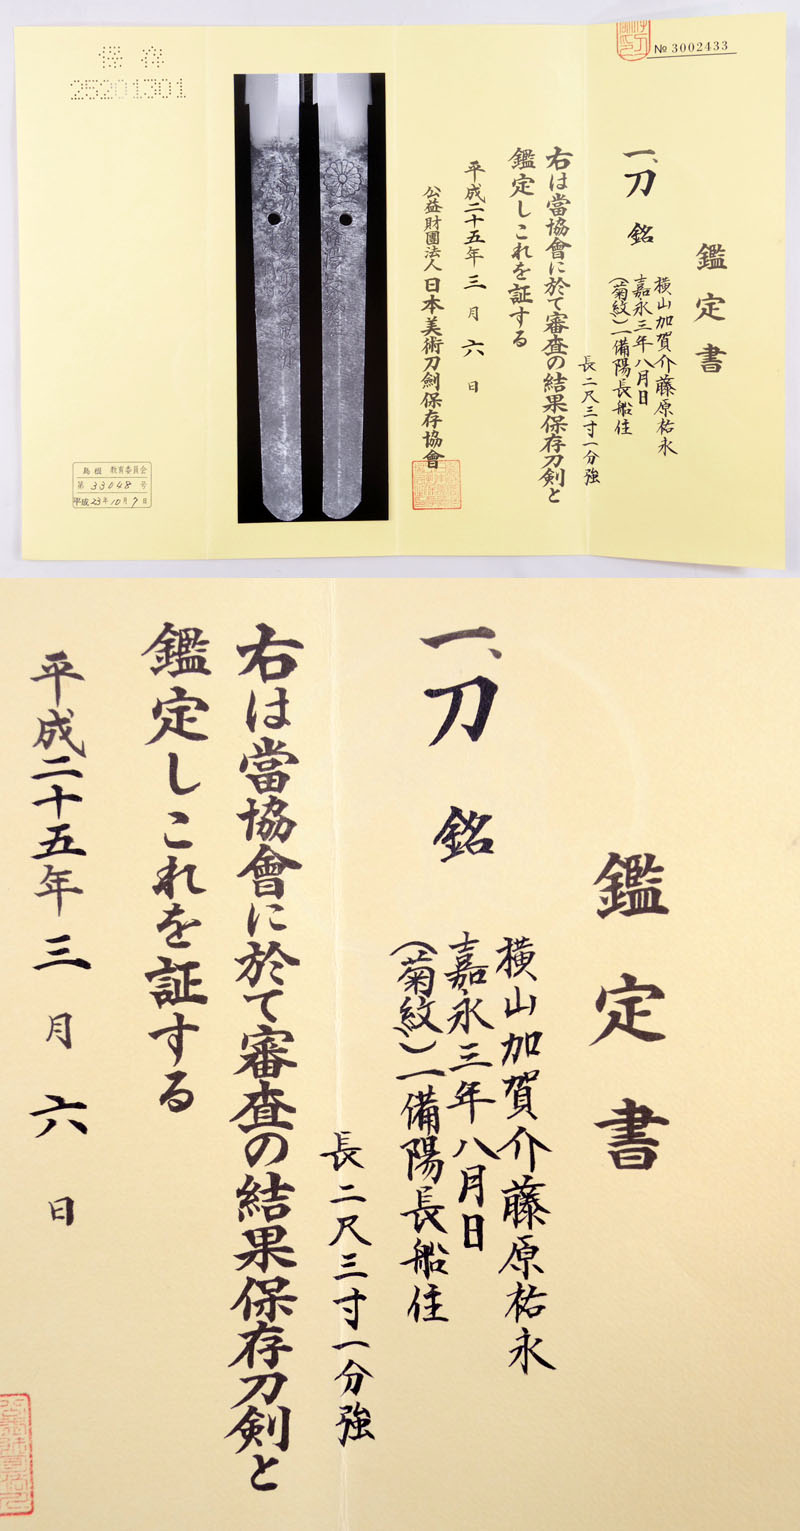 № 3002433
鑑定書
一、刀 銘
横山加賀介藤原祐永
嘉永三年八月日
(菊紋)一備陽長船住
長二尺三寸一分強
右は當協會に於て審査の結果保存刀剣と
鑑定しこれを証する
平成二十五年三月六日
公益財團法人日本美術刀劍保存協會
保存
25201301
島根 教育委員会
第 33048 号
平成 23年10月7日
鑑定書
一、刀 銘
横山加賀介藤原祐永
嘉永三年八月日
(菊紋)一備陽長船住
長二尺三寸一分強
右は當協會に於て審査の結果保存刀剣と
鑑定しこれを証する
平成二十五年三月六日